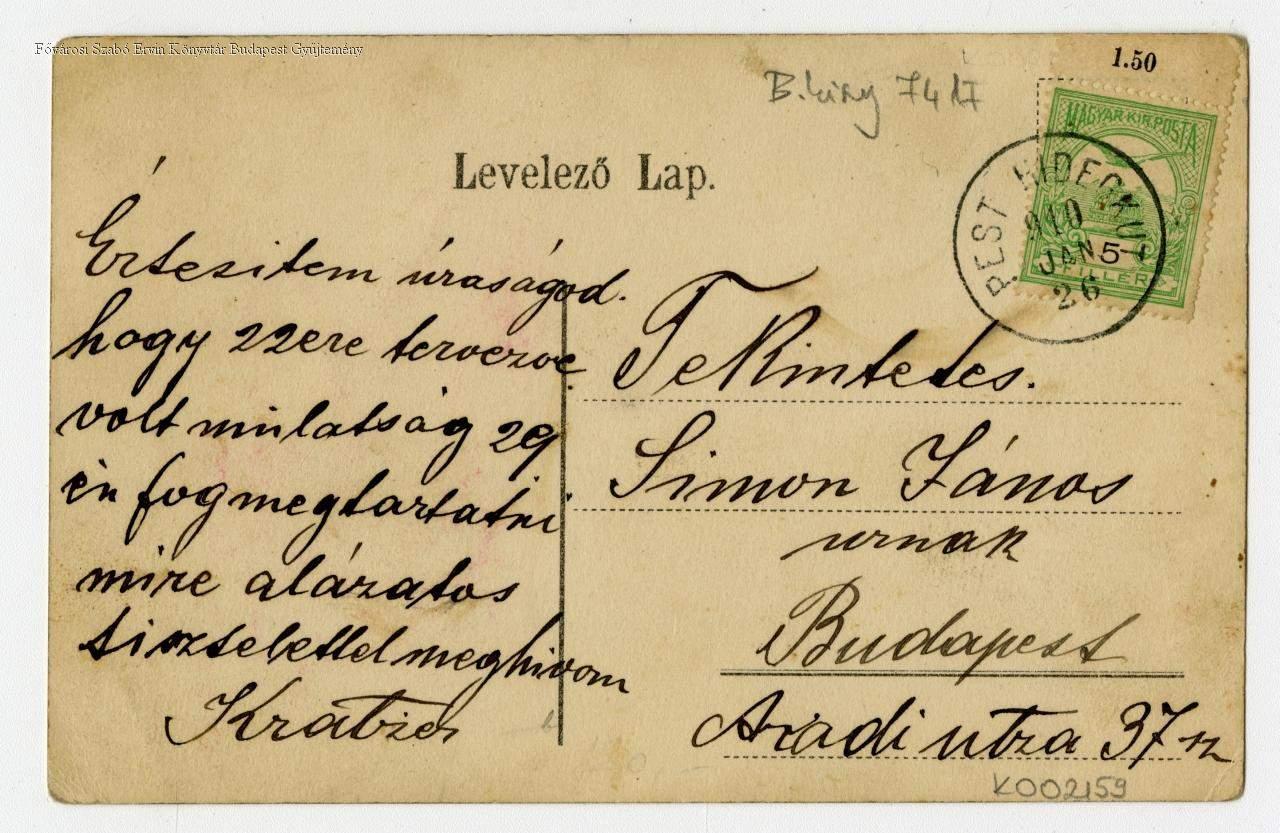 Fővárosi Szabó Ervin Könyvtár Budapest Gyűjtemény
1.50
B.kirg 74 17
MAGYAR KIR. POSTA
FILLÉR
PEST HIDEGKUT
910
JAN 5
26
Levelező Lap.
Értesitem úraságod.
hogy 22ere tervezve
volt mulatság 29
én fog megtartatni
mire alázatos
tisztelettel meghivom
Kratzer
Tekintetes.
Simon János
urnak
Budapest
Aradi utza 37 sz
K002159